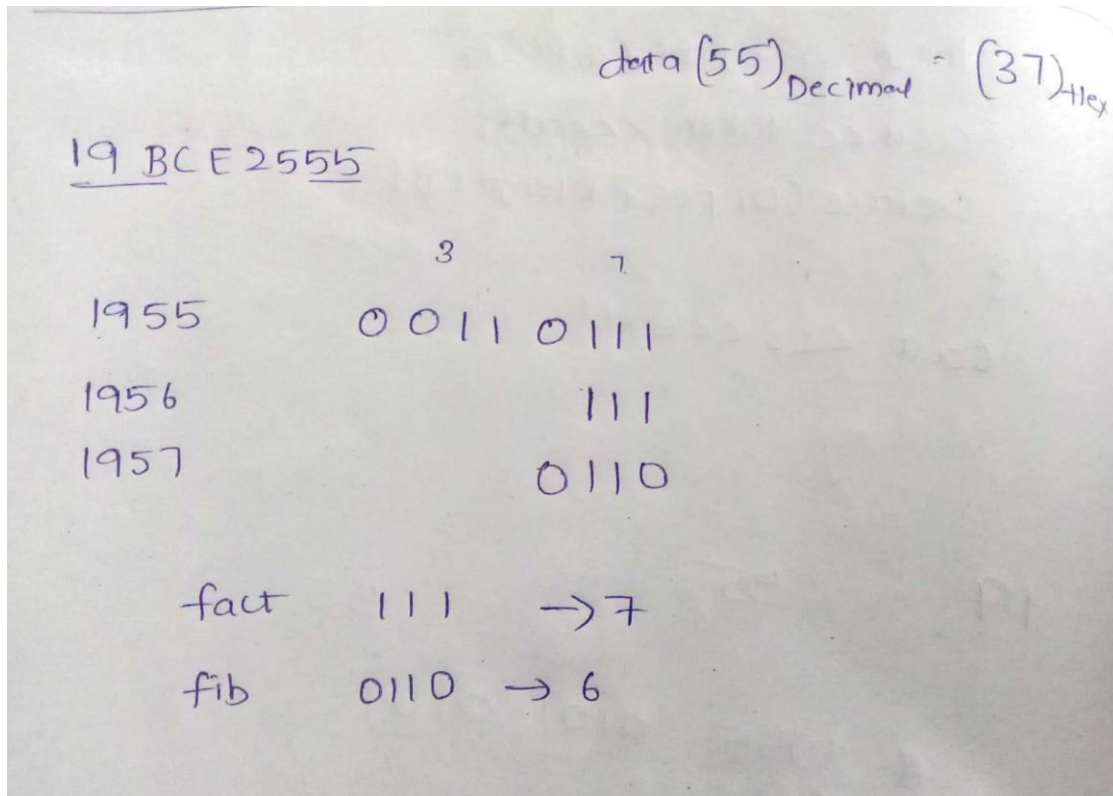 data (55)Decimal = (37)Hex
19 BCE2555
3 7
1955 0011 0111
1956 111
1957 0110
fact 111 → 7
fib 0110 → 6